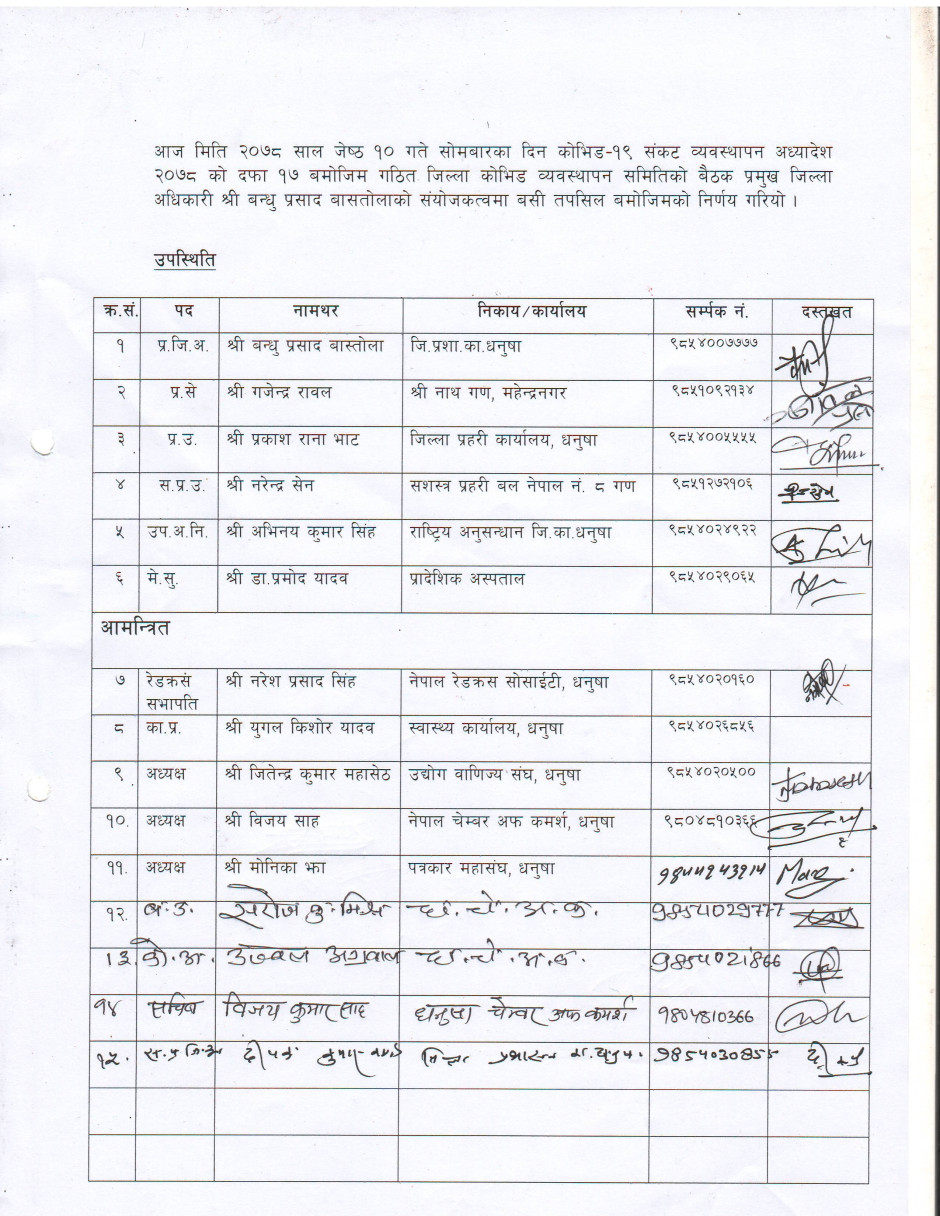 आज मिति २०७८ साल जेष्ठ १० गते सोमबारका दिन कोभिड-१९ संकट व्यवस्थापन अध्यादेश
२०७८ को दफा १७ बमोजिम गठित जिल्ला कोभिड व्यवस्थापन समितिको बैठक प्रमुख जिल्ला
अधिकारी श्री बन्धु प्रसाद बास्तोलाको संयोजकत्वमा बसी तपसिल बमोजिमको निर्णय गरियो ।
उपस्थिति
क्र.सं. पद नामथर निकाय/कार्यालय सर्म्पक नं. दस्तखत
१ प्र.जि.अ. श्री बन्धु प्रसाद बास्तोला जि.प्रशा.का.धनुषा ९८५४००७७७७
२ प्र.से श्री गजेन्द्र रावल श्री नाथ गण, महेन्द्रनगर ९८५१०९२१३४
३ प्र.उ. श्री प्रकाश राना भाट जिल्ला प्रहरी कार्यालय, धनुषा ९८५४००५५५५
४ स.प्र.उ. श्री नरेन्द्र सेन सशस्त्र प्रहरी बल नेपाल नं. ८ गण ९८५१२७२१०६
५ उप.अ.नि. श्री अभिनय कुमार सिंह राष्ट्रिय अनुसन्धान जि.का.धनुषा ९८५४०२४९२२
६ मे.सु. श्री डा.प्रमोद यादव प्रादेशिक अस्पताल ९८५४०२९०६५
आमन्त्रित
७ रेडक्रसं सभापति श्री नरेश प्रसाद सिंह नेपाल रेडक्रस सोसाईटी, धनुषा ९८५४०२०१६०
८ का.प्र. श्री युगल किशोर यादव स्वास्थ्य कार्यालय, धनुषा ९८५४०२६८५६
९ अध्यक्ष श्री जितेन्द्र कुमार महासेठ उद्योग वाणिज्य संघ, धनुषा ९८५४०२०५००
१०. अध्यक्ष श्री विजय साह नेपाल चेम्बर अफ कमर्श, धनुषा ९८०४८१०३६६
११. अध्यक्ष श्री मोनिका झा पत्रकार महासंघ, धनुषा
१२. ब.उ. सरोज कु. मिश्र 9854029777
13. को.अ. उज्वल अग्रवाल 9854021866
१४ सचिव विजय कुमार साह धनुषा चेम्वर अफ कमर्श 9804810366
१५. स.प्र.जि.अ 9854030855